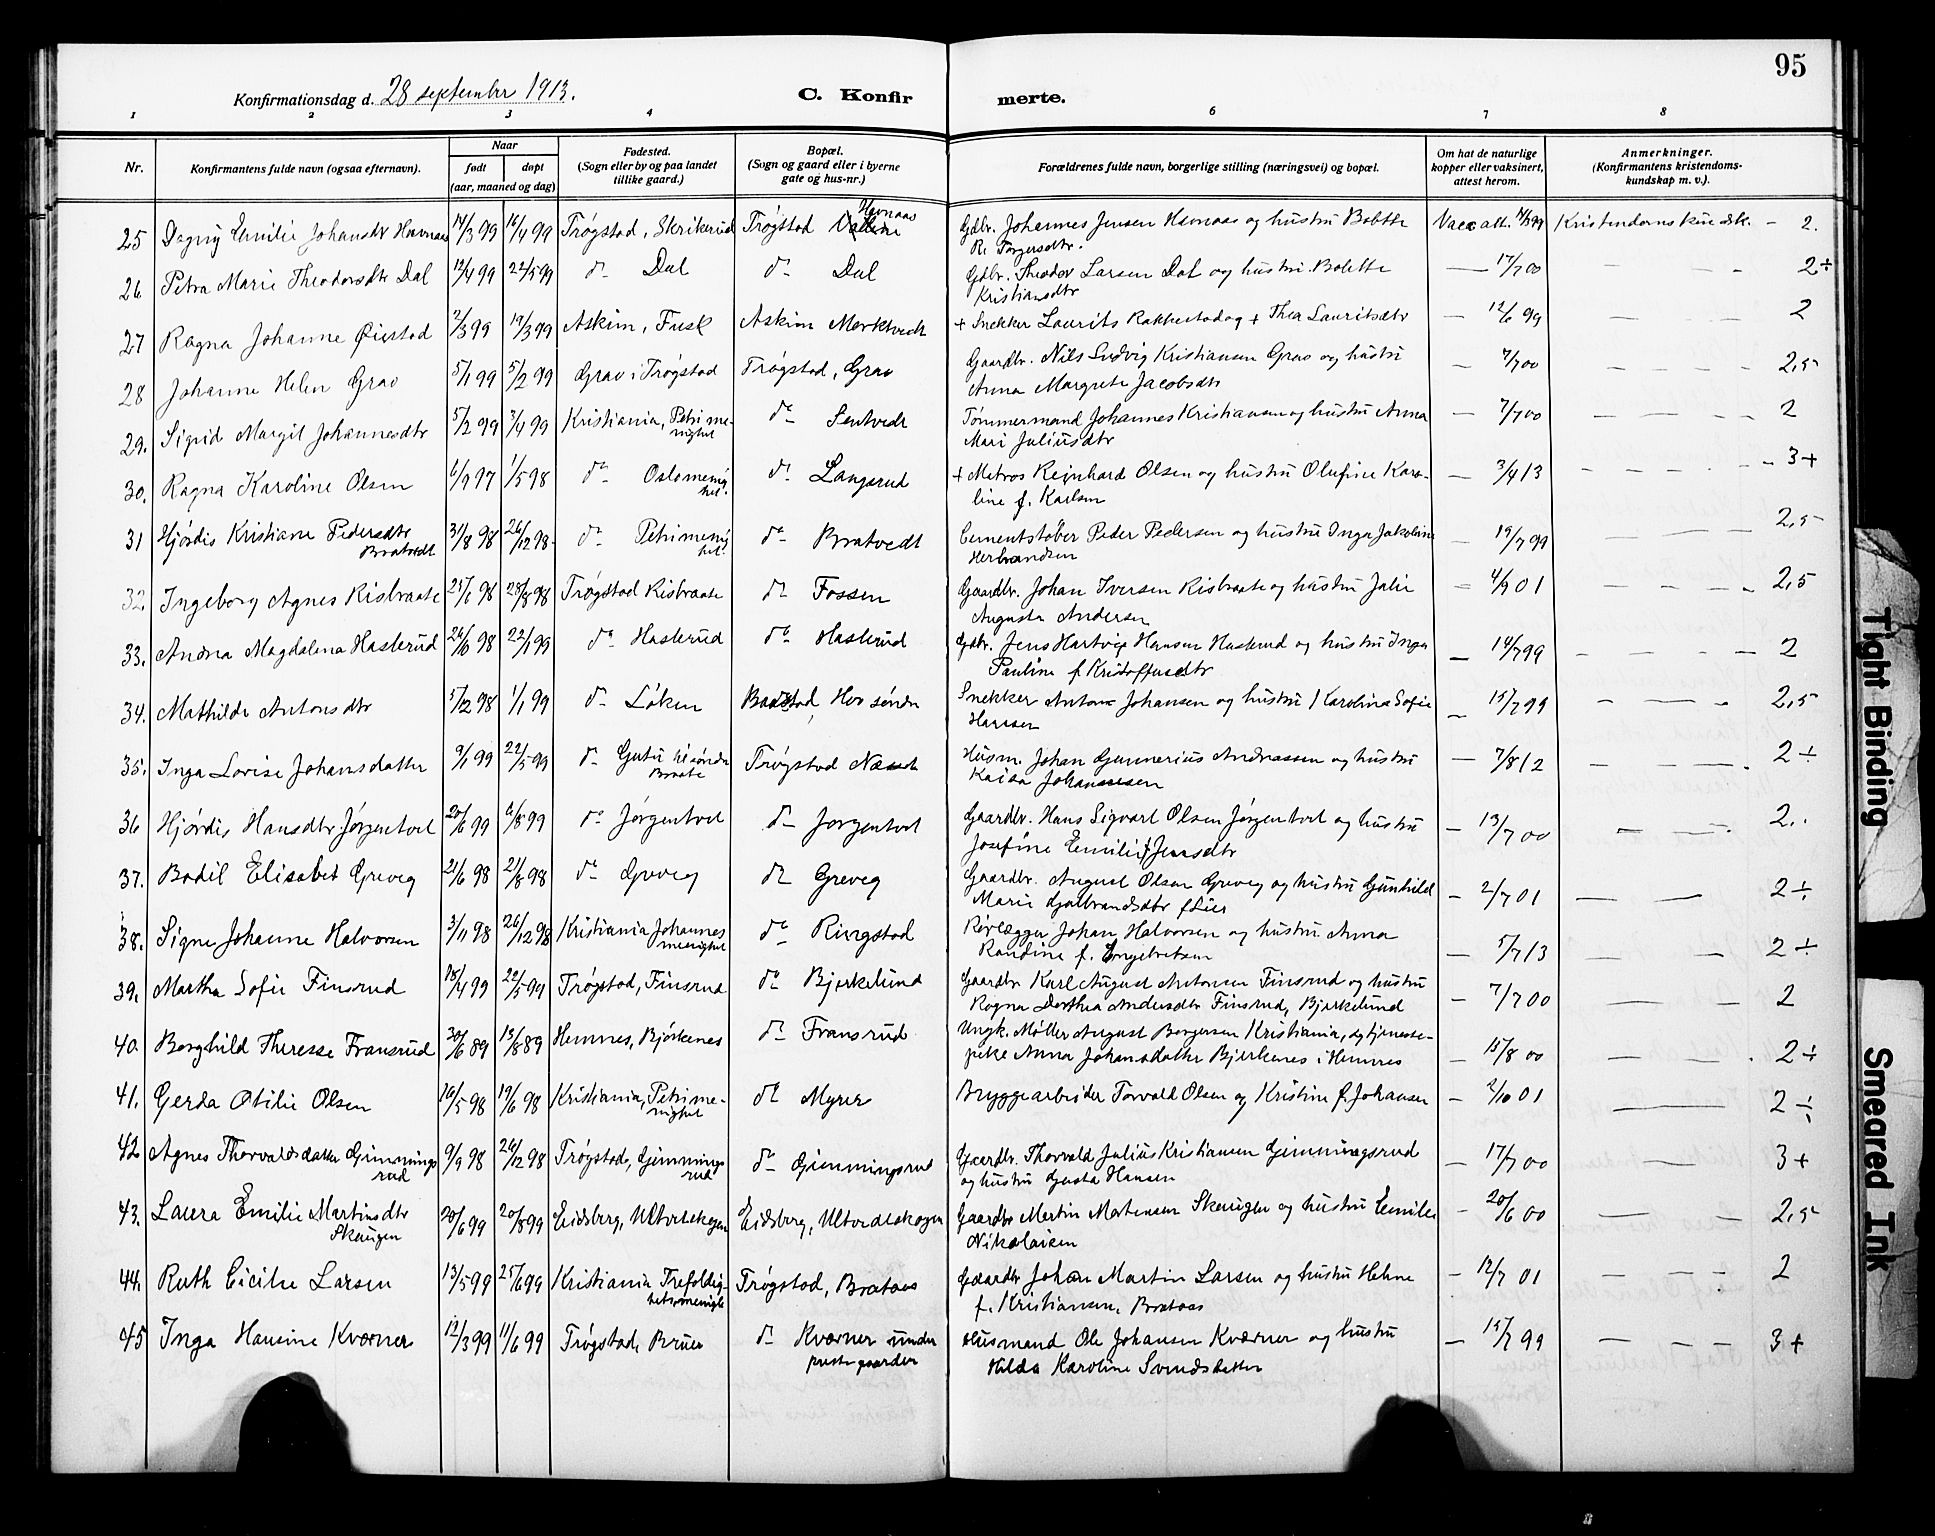 95
Konfirmationsdag d. 28 september 1913.
C. Konfir merte.
1 2 3 4 6 7 8
Nr.
Konfirmantens fulde navn (ogsaa efternavn).
Naar
født døpt
(aar, maaned og dag)
Fødested.
(Sogn eller by og paa landet
tillike gaard.)
Bopæl.
(Sogn og gaard eller i byerne
gate og hus-nr.)
Forældrenes fulde navn, borgerlige stilling (næringsvei) og bopæl.
Om hat de naturlige
kopper eller vaksinert,
attest herom.
Anmerkninger.
(Konfirmantens kristendoms-
kundskap m. v.).
25 Dagny Emilie Johansdtr Havnaas 14/3 99 16/4 99 Trøgstad, Skrikerud Trøgstad Havnaas Gdbr. Johannes Jensen Havnaas og hustru Bolette Vacc att. 14/7 99 Kristendomskundsk. - 2.
R. Torgersdtr.
26 Petra Marie Theodorsdtr Dal 12/4 99 22/5 99 do Dal do Dal Gdbr. Theodor Larsen Dal og hustru Bolette — 17/7 00 — — - 2÷
Kristiansdtr
27 Ragna Johanne Øiestad 2/3 99 19/3 99 Askim, Fusk Askim Merktvedt + Snekker Laurits Rakkestad og + Thea Lauritsdtr — 12/6 99 — — - 2
28 Johanne Helen Grav 5/1 99 5/2 99 Grav i Trøgstad Trøgstad, Grav Gaardbr. Nils Ludvig Kristiansen Grav og hustru — 7/7 00 — — - 2,5
Anna Margrete Jacobsdtr
29. Sigrid Margit Johannesdtr 5/2 99 3/4 99 Kristiania, Petri me- do Sentvedt Tømmermand Johannes Kristiansen og hustru Anna — 7/7 00 — — - 2
nighet Mari Juliusdtr
30. Ragna Karoline Olsen 6/9 97 1/5 98 do Oslo menig do Langsrud + Matros Reinhard Olsen og hustru Olufine Karo- — 3/4 13 — — - 3+
het. line f. Karlsen
31 Hjørdis Kristiane Pedersdtr 31/8 98 26/12 98 do Petri menig do Bratvedt Cementstøber Peder Pedersen og hustru Inga Jakobine — 19/7 99 — — 2,5
Bratvedt het. Herbrandsen
32. Ingeborg Agnes Risbraate 25/6 98 28/8 98 Trøgstad Risbraate do Fossen Gaardbr. Johan Iversen Risbraate og hustru Julie = 4/9 01 — — - 2,5
Augusta Andersen
33. Andrea Magdalena Hasterud 26/6 98 22/1 99 do Hasterud do Hasterud Gdbr. Jens Hartvig Hansen Hasterud og hustru Inga — 14/7 99 — — - 2
Pauline f. Kristoffersdtr
34. Mathilde Antonsdtr 5/12 98 1/1 99 do Løken Baastad, Hov søndre Snekker Anton Johansen og hustru Karoline Sofie — 15/7 99 — — - 2,5
Hansen
35. Inga Lovise Johansdatter 9/1 99 22/5 99 do Gutu til søndre Trøgstad Husm. Johan Gunnerius Andreassen og hustru — 7/8 12 — — . 2÷
Braate Kaisa Johannesen
36 Hjørdis Hansdtr Jørgentvet 20/6 99 6/8 99 do Jørgentvet do Jørgentvet Gaardbr. Hans Sigvart Olsen Jørgentvet og hustru — 13/7 00 — — . 2.
Josefine Emilie f Jensdtr
37. Bodil Elisabet Greveg 21/6 98 21/8 98 do Greveg do Greveg Gaardbr. August Olsen Greveg og hustru Gunhild — 2/7 01 — — 2÷
Marie Gulbrandsdtr f Lier
38. Signe Johanne Halvorsen 3/11 98 26/12 98 Kristiania Johannes do Ringstad Rørlægger Johan Halvorsen og hustru Anna — 5/7 13 — — 2÷
menighet Randine f. Engebretsen
39. Martha Sofie Finsrud 18/4 99 22/5 99 Trøgstad, Finsrud do Bjerkelund Gaardbr Karl August Antonsen Finsrud og hustru — 7/7 00 — — 2
Ragna Dorthea Andersdtr Finsrud, Bjerkelund
40. Borghild Therese Fransrud 30/6 89 13/8 89 Hemnes, Bjørkenes do Fransrud Ungk. Møller August Borgersen Kristiania, og tjeneste-
pike Anna Johansdatter Bjerkenes i Hemnes — 15/8 00 — — . 2÷
41. Gerda Otilie Olsen 16/5 98 19/6 98 Kristiania, Petri me- do Myrer Bryggearbeider Torvald Olsen og Kristine f. Johansen — 2/10 01 — 2÷
nighet
42 Agnes Thorvaldsdatter Gimmings 9/9 98 26/12 98 Trøgstad, Gimmings do Gimmingsrud Gaardbr. Thorvald Julius Kristiansen Gimmingsrud — 17/7 00 — — 3+
rud rud og hustru Gusta Hansen
43. Laura Emilie Martinsdtr 20/6 99 20/8 99 Eidsberg, Ultvedtskogen Eidsberg, Ultvedtskogen Gaardbr Martin Mortensen Skaugen og hustru Emilie — 20/6 00 — — 2,5
Skaugen Nikolaisen
44. Ruth Cicilie Larsen 13/5 99 25/6 99 Kristiania Trefoldig- Trøgstad, Brataas Gaardbr Johan Martin Larsen og hustru Helene — 12/7 01 — — - 2
hetsmenigh f. Kristiansen, Brataas
45 Inga Hansine Kværner 12/3 99 11/6 99 Trøgstad, Bruer do Kværner under Husmand Ole Johansen Kværner og hustru — 15/7 99 — — - 3+
prestegaarden Hilda Karoline Svendsdatter
Tight Binding
Smeared Ink